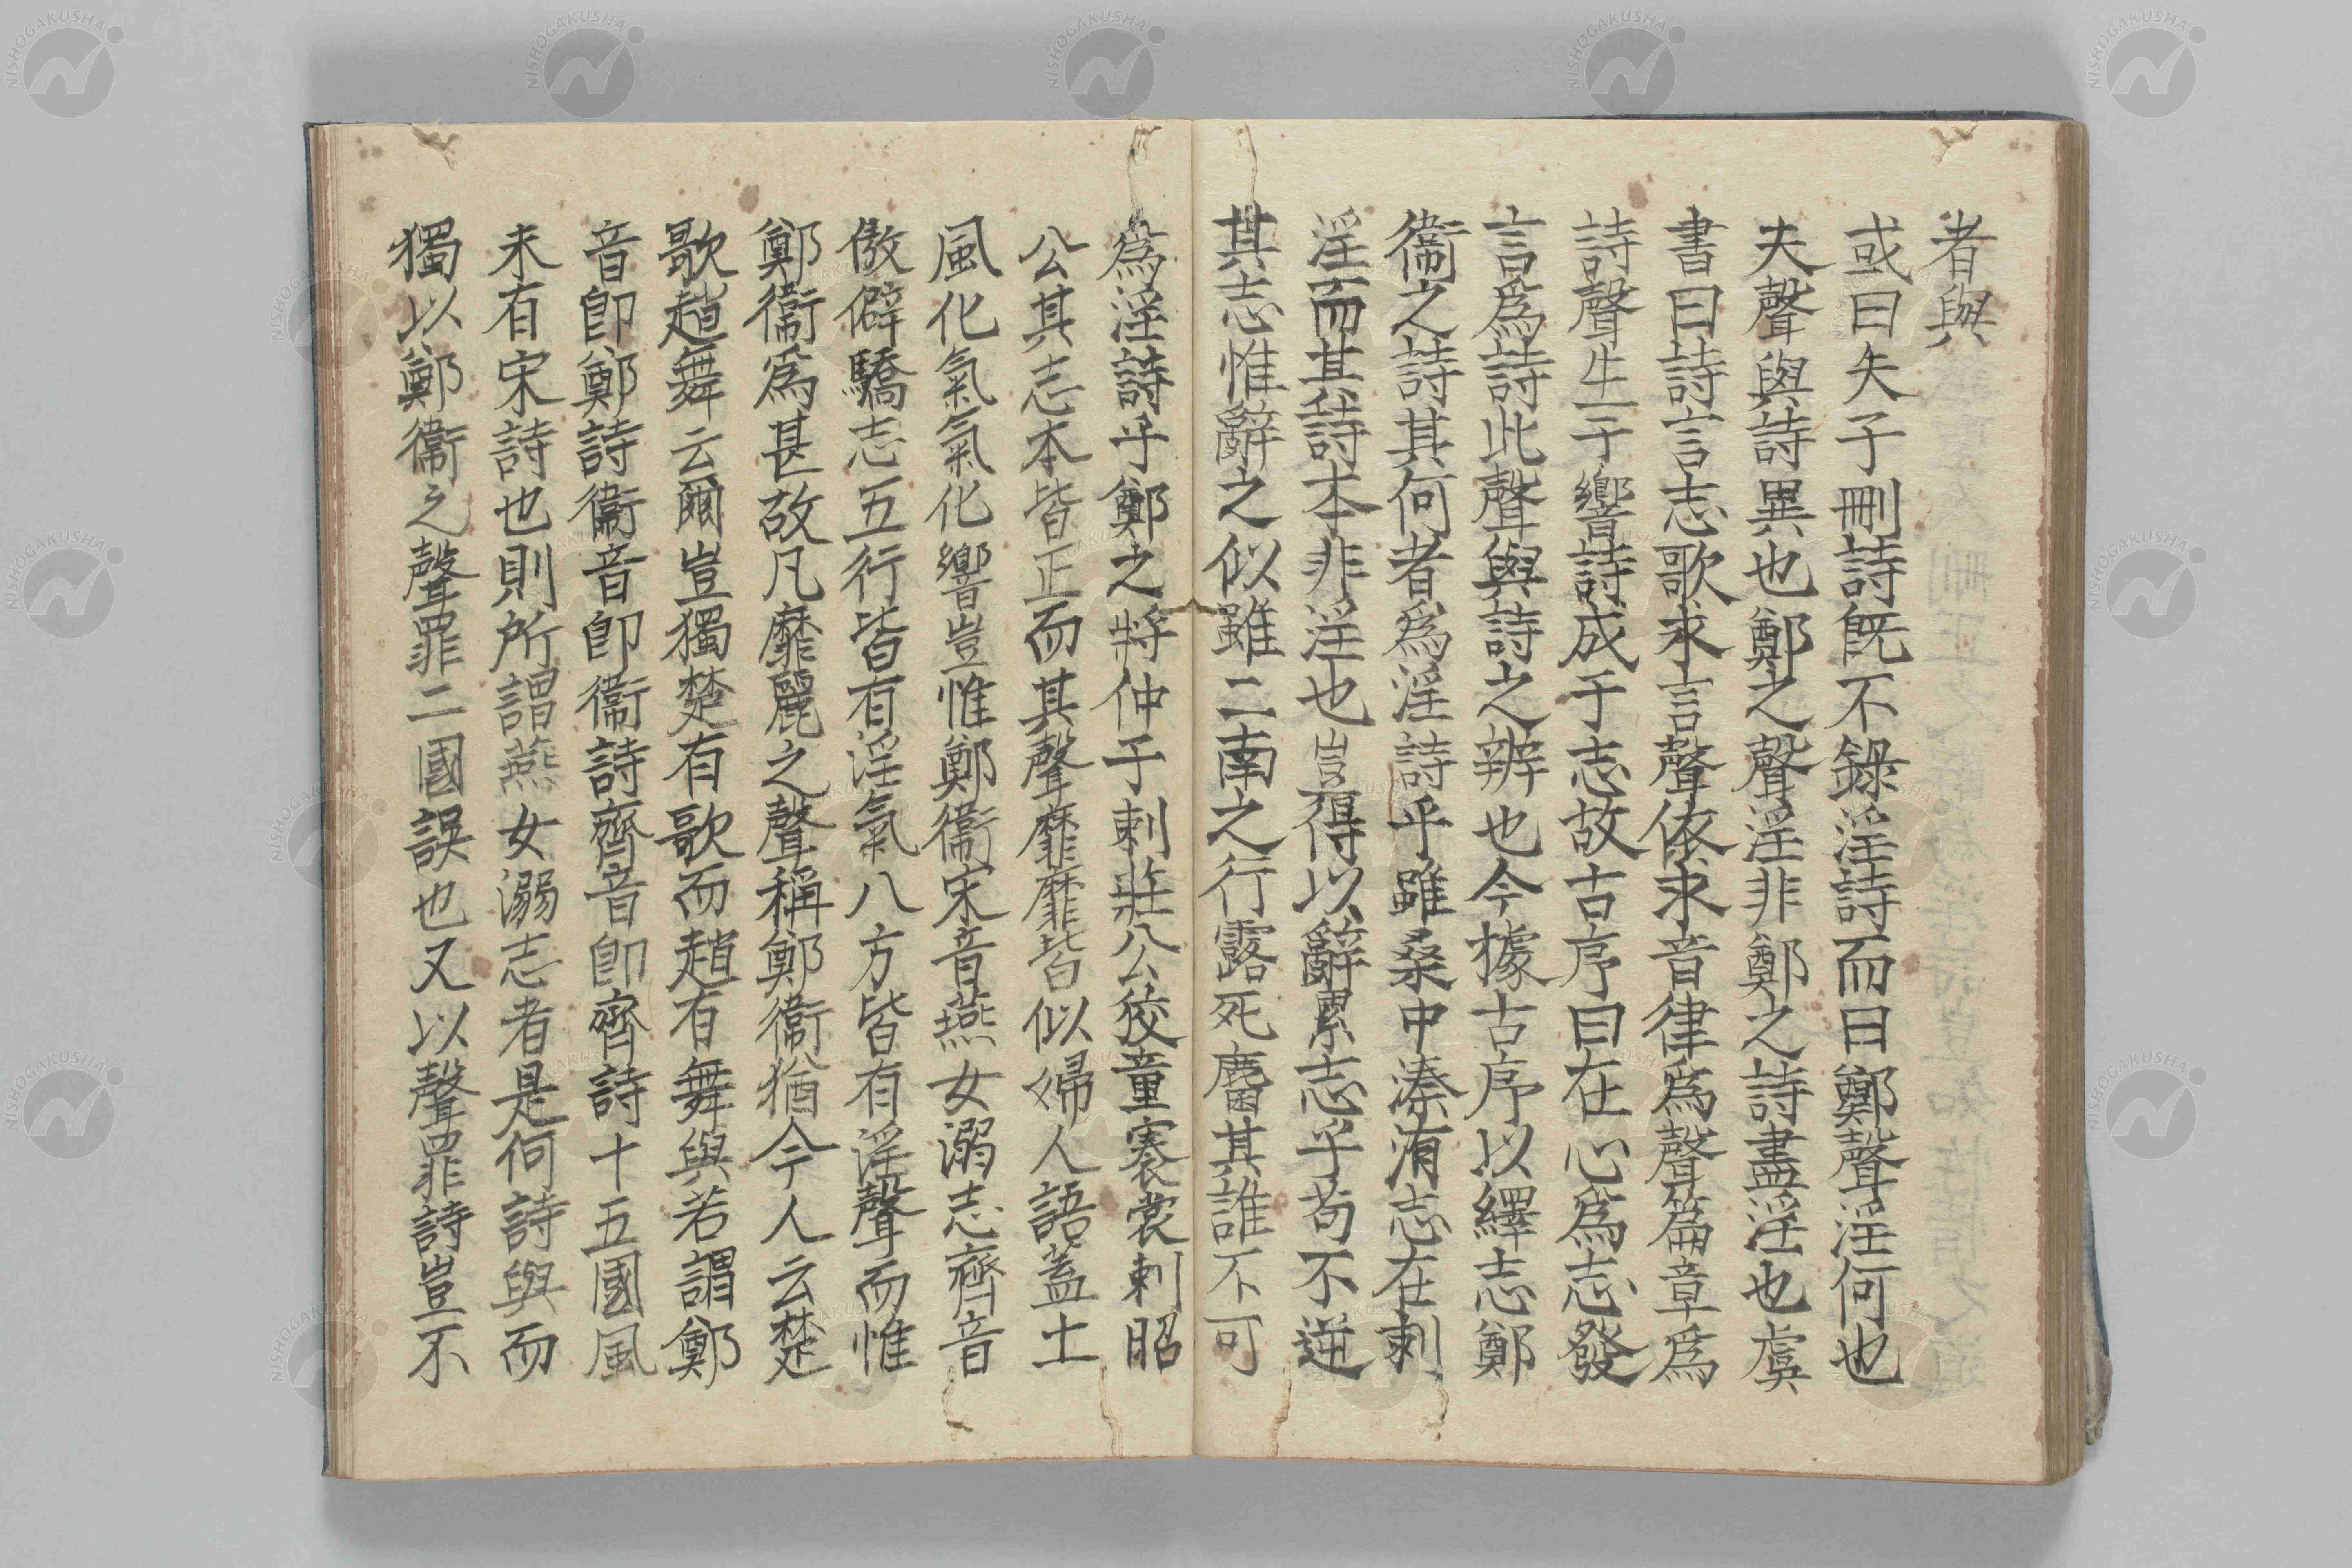 者與
或曰夫子刪詩既不錄淫詩而曰鄭聲淫何也
夫聲與詩異也鄭之聲淫非鄭之詩盡淫也虞
書曰詩言志歌求言聲依求音律為聲篇章為
詩聲生于響詩成于志故古序曰在心為志發
言為詩此聲與詩之辨也今據古序以繹志鄭
衞之詩其何者為淫詩乎雖桑中溱洧志在刺
淫而其詩本非淫也豈得以辭累志乎苟不逆
其志惟辭之似雖二南之行露死麕其誰不可
為淫詩乎鄭之將仲子刺莊公狡童褰裳刺昭
公其志本皆正而其聲靡靡皆似婦人語蓋土
風化氣氣化響豈惟鄭衞宋音燕女溺志齊音
傲僻驕志五行皆有淫氣八方皆有淫聲而惟
鄭衞為甚故凡靡麗之聲稱鄭衞猶今人云楚
歌趙舞云爾豈獨楚有歌而趙有舞與若謂鄭
音卽鄭詩衞音卽衞詩齊音卽齊詩十五國風
未有宋詩也則所謂燕女溺志者是何詩與而
獨以鄭衞之聲罪二國誤也又以聲罪詩豈不
NISHOGAKUSHA